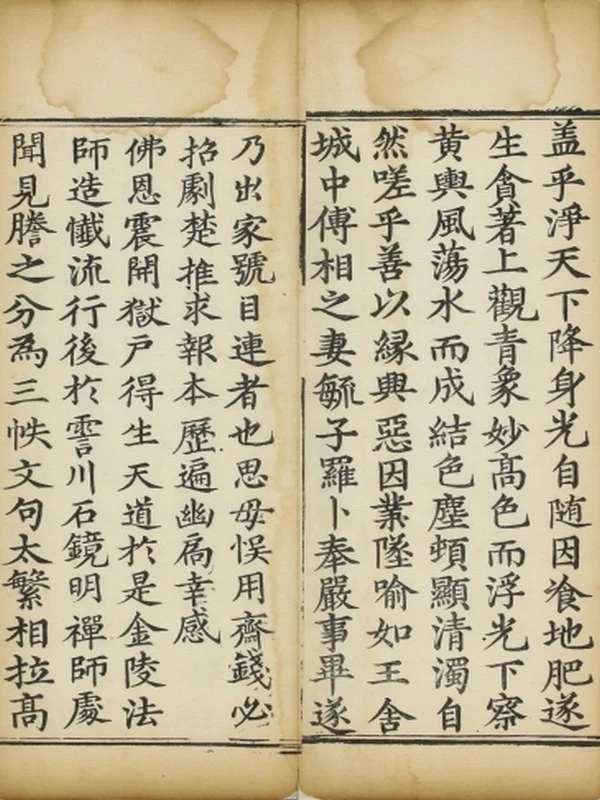 盖乎淨天下降身光自随因飡地肥遂
生貪著上觀青象妙髙色而浮光下察
黄輿風蕩水而成結色塵頓顯清濁自
然嗟乎善以縁興惡因業墜喻如王舍
城中傅相之妻毓子羅卜奉嚴事畢遂
乃出家號目連者也思母悮用齋錢必
招劇楚推求報本歷遍幽扃幸感
佛恩震開獄户得生天道於是金陵法
師造懴流行後於霅川石鏡明禪師處
聞見謄之分爲三帙文句太繁相拉髙